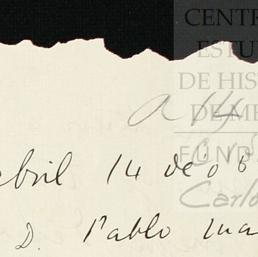 CENTR
ESTU
DE HIS
DE M
FUND
Carlo
abril 14 de 08
D. Pablo Ma